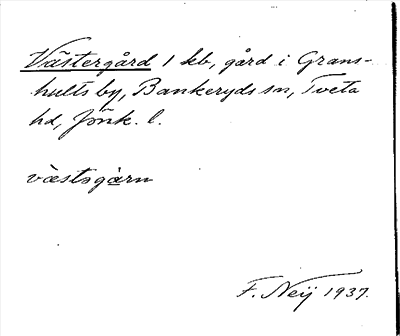 Västergård 1 kb, gård i Grans-
hults by, Bankeryds sn, Tveta
hd, Jönk. l.
vǽstəgàrn
F. Neij 1937.